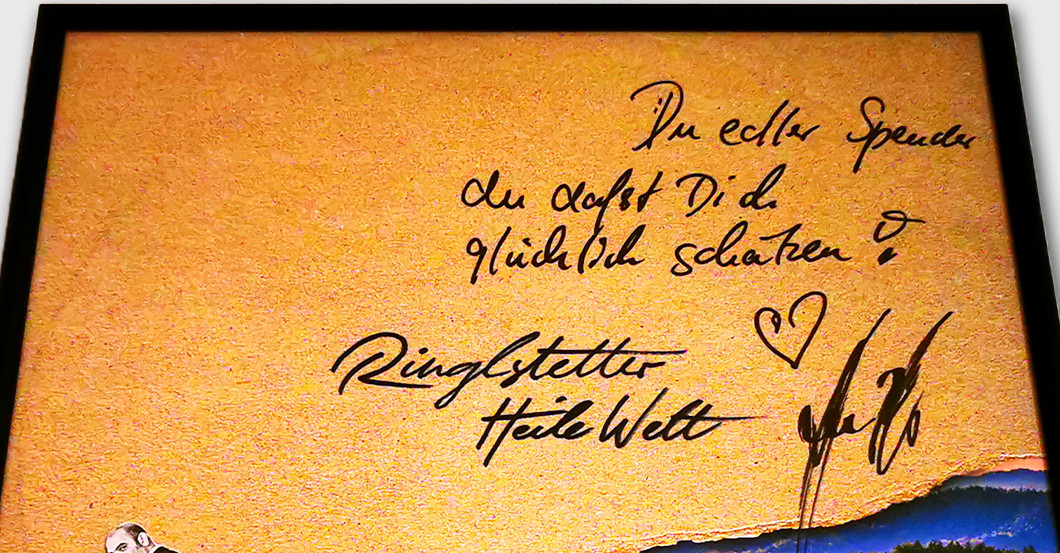 Du edler Spender
du dafst Dich
glücklich schätzen!
Ringlstetter
Heile Welt